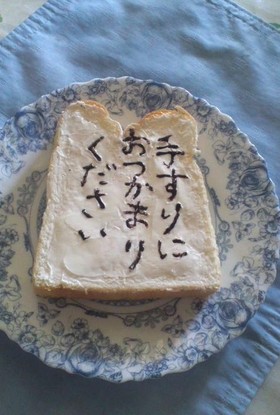 手すりに
おつかまり
ください